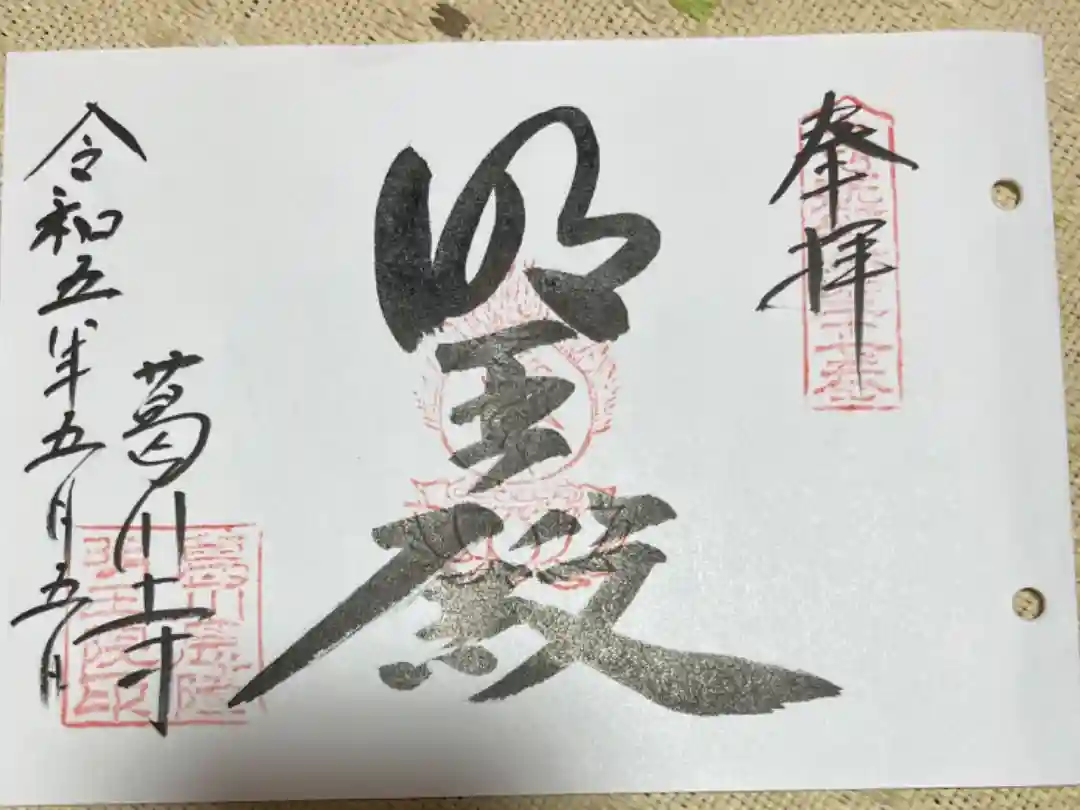 奉拝
明王殿
葛川寺
令和五年五月五日